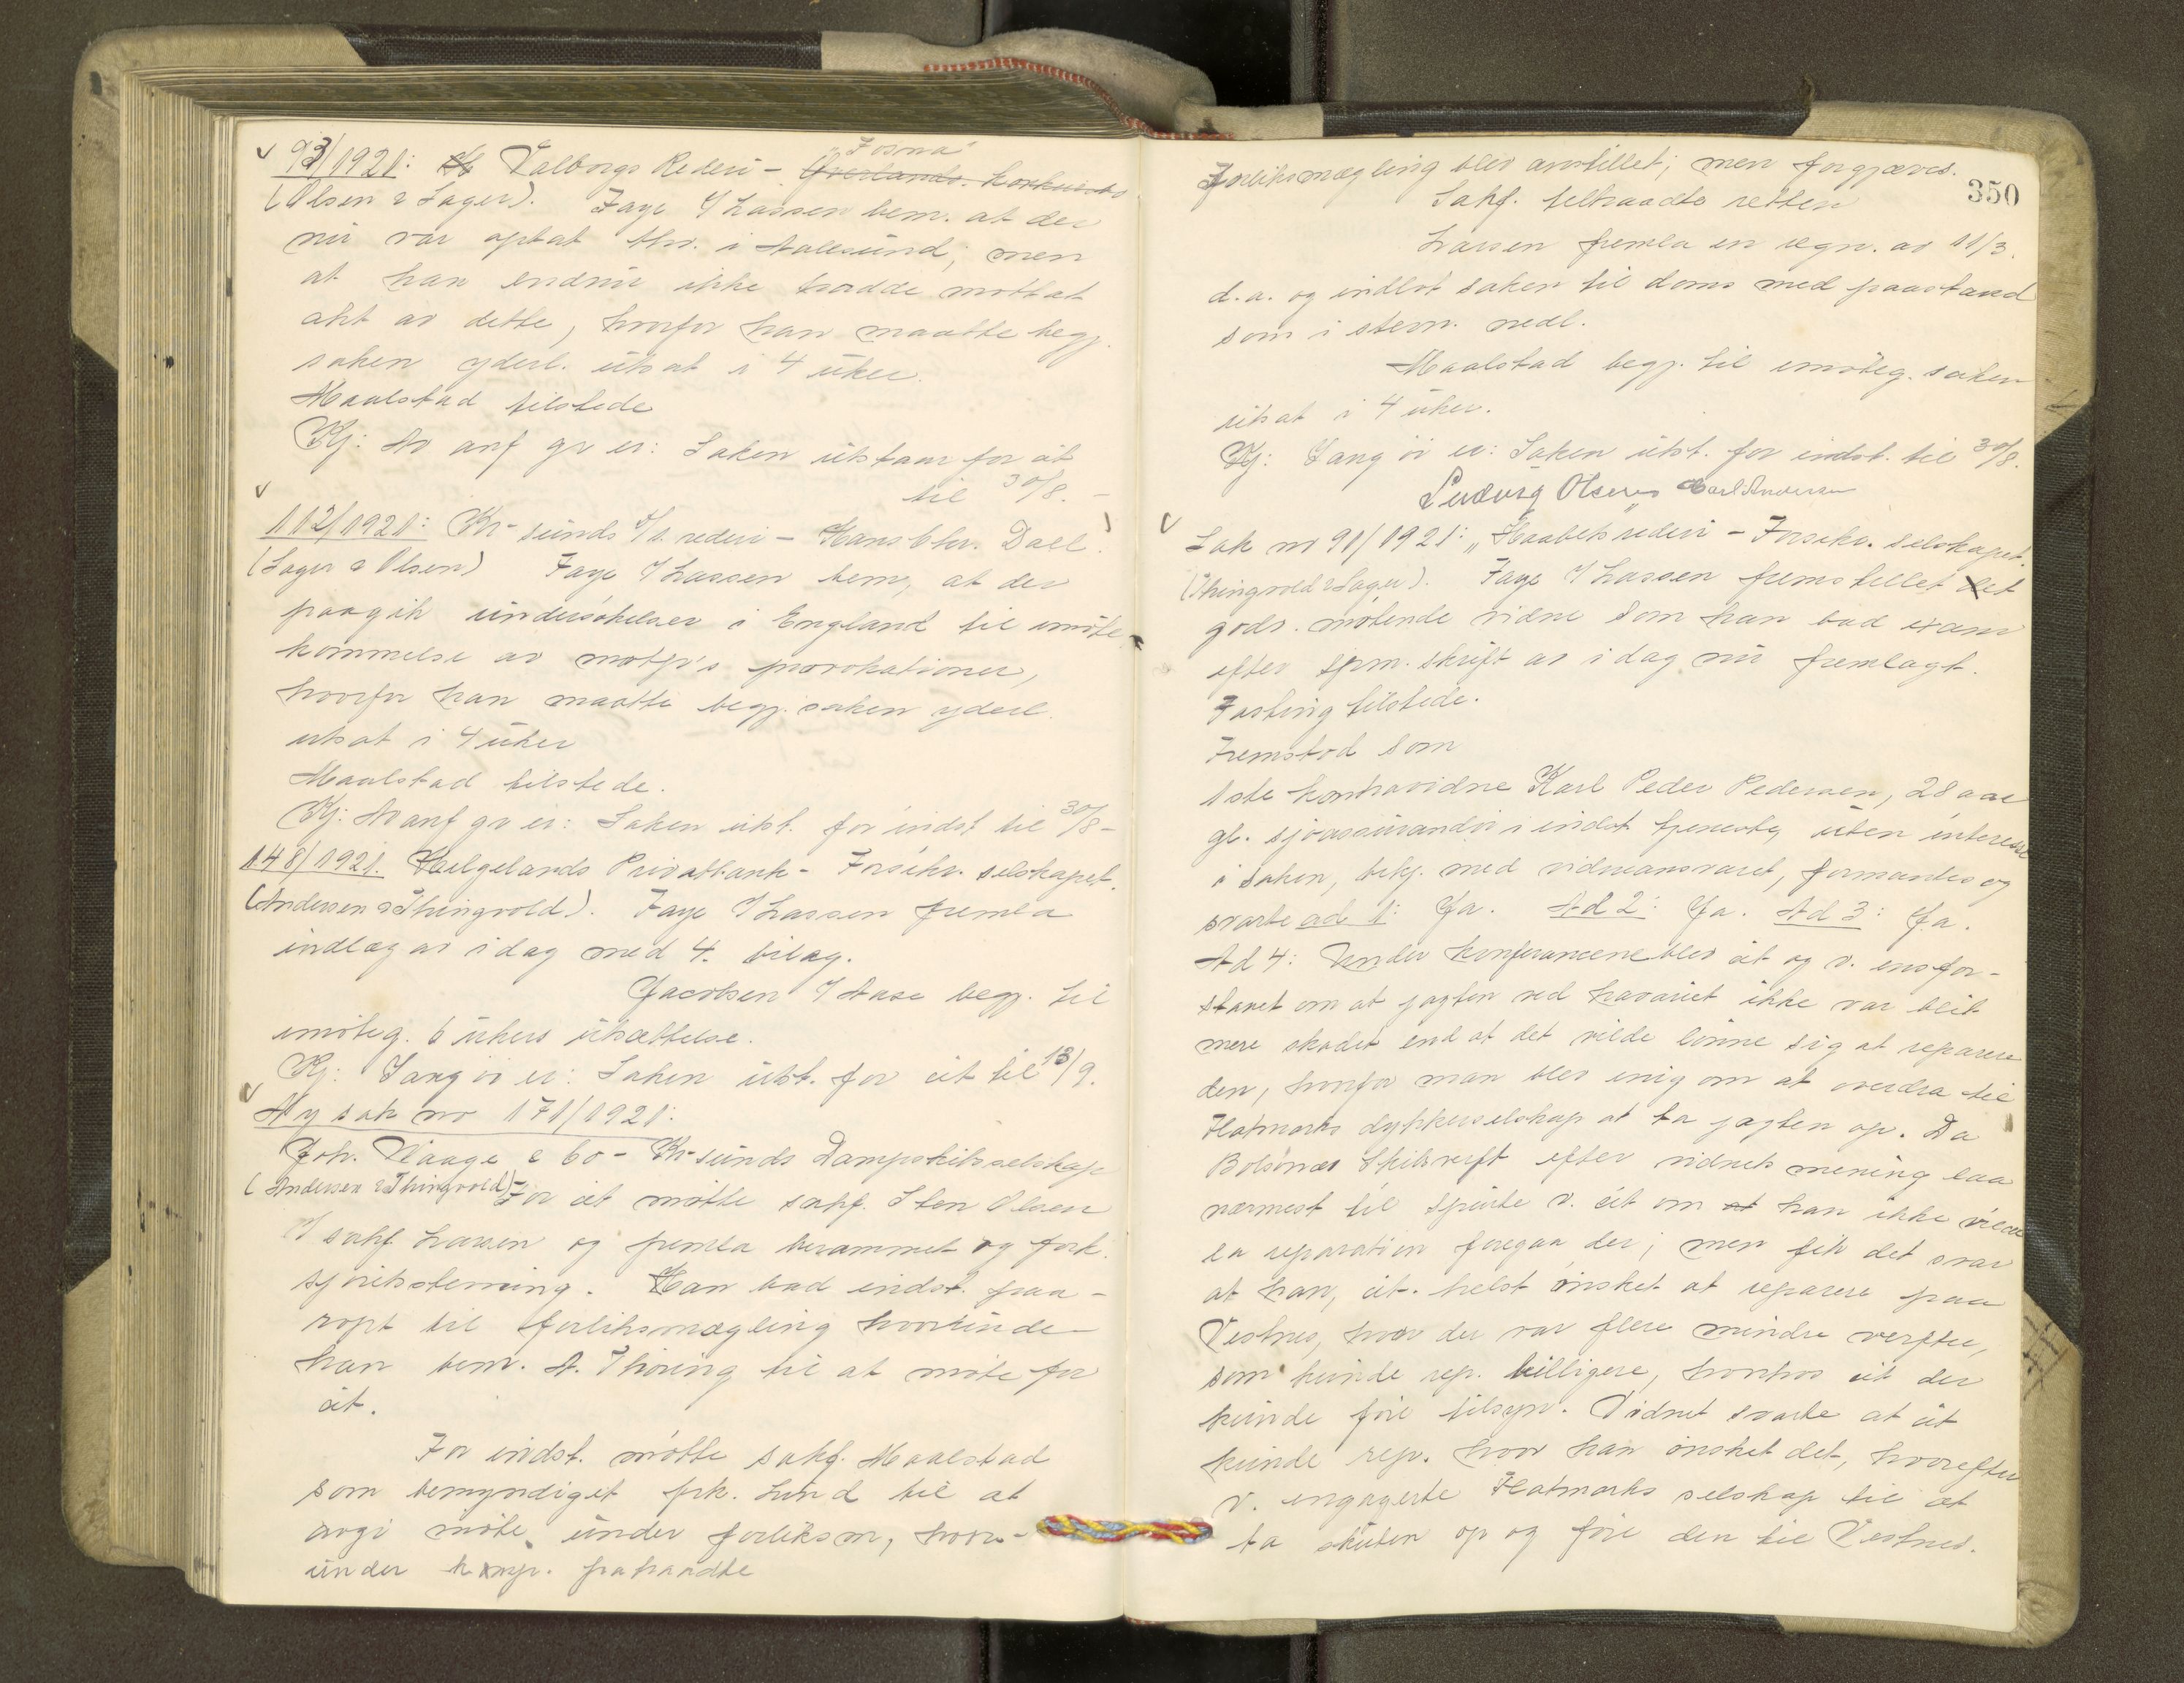 93/1921: Valborgs Rederi - "Fosna"
(Olsen & Lager). Faye f/ Larssen bem. at der
nu var optat thv. i Aalesund; men
at han endnu ikke hadde mottat
akt av dette, hvorfor han maatte begj.
saken yderl. utsat i 4 uker.
Maalstad tilstede
Kj: Av anf gr er: Saken utstaar for cit
til 30/8. -
112/1921: Kr-sunds rederi - Hans Chr. Dall.
(Lager & Olsen) Faye f/ Larssen bem, at der
paagik undersøkelser i England til imøte
kommelse av motp's provokationer,
hvorfor han maatte begj. saken yderl.
utsat i 4 uker
Maalstad tilstede.
Kj: Av anf gr er: Saken utst. for indst til 30/8 -
148/1921. Helgelands Privatbank - Forsikr. selskapet.
(Andersen & Thingvold). Faye f/ Larssen fremla
indlæg av idag med 4. bilag.
Jacobsen f/ Aase begj. til
imøteg. 6 ukers utsættelse.
Kj: Gang øi er: Saken utst. for cit til 13/9.
Ny sak no 171/1921:
Joh. Waage & Co - Kr-sunds Dampskibsselskap
(Andersen & Thingvold) For cit møtte sakf. Sten Olsen
f/ sakf Larssen og fremla berammet og fork.
sjøretsstevning. Han bad indst. paa-
ropt til forliksmægling hvorunde
han bem. A. Thoring til at møte for
cit.
For indst. møtte sakf. Maalstad
som bemyndiget frk. Lund til at
avgi møte under forliksm, hvor-
under komp. fratraadte
350
Forliksmægling blev anstillet; men forgjæves.
Sakf. tiltraadte retten
Larssen fremla en regn. av 11/3.
d.a. og indlot saken til doms med paastand
som i stevn. nedl.
Maalstad begj. til imøteg. saken
utsat i 4 uker.
Kj: Gang øi er: Saken utst. for indst. til 30/8.
Ludvig Olsen Carl Andersen
Sak no 91/1921: "Haabets rederi - Forsikr. selskapet.
(Thingvold & Lager). Faye f/ Larssen fremstillet et
godv. møtende vidne som han bad exam
efter spm. skrift av idag nu fremlagt.
Fasting tilstede.
Fremstod som
1ste kontravidne Karl Peder Pedersen, 28 aar
gl. sjøassurandør i indst tjeneste, uten interesse
i saken, bekj. med vidneansvaret, formantes og
svarte ad 1: Ja. Ad 2: Ja. Ad 3: Ja.
Ad 4: Under konferancene blev cit og v. ensfor-
staaet om at jagten ved havariet ikke var blit
mere skadet end at det vilde lønne sig at reparere
den, hvorfor man blev enig om at overdra til
Flatmarks dykkerselskap at ta jagten op. Da
Bolsønæs Skibsverft efter vidnets mening laa
nærmest til spurte v. cit om han ikke vilde
la reparation foregaa der; men fik det svar
at han, cit. helst ønsket at reparere paa
Vestnes, hvor der var flere mindre verfter,
som kunde rep. billigere, hvorhos cit der
kunde føre tilsyn. Vidnet svarte at cit
kunde rep. hvor han ønsket det, hvorefter
v. engagerte Flatmarks selskap til at
ta skuten op og føre den til Vestnes.